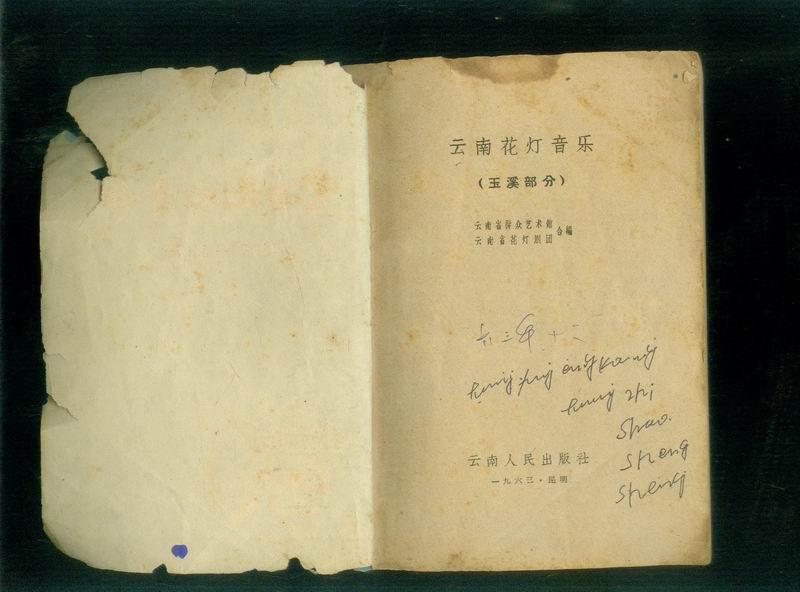 云南花灯音乐
(玉溪部分)
云南省群众艺术馆
云南省花灯剧团
合编
六三年十二
zhi
Shao.
Sheng
云南人民出版社
一九六三·昆明